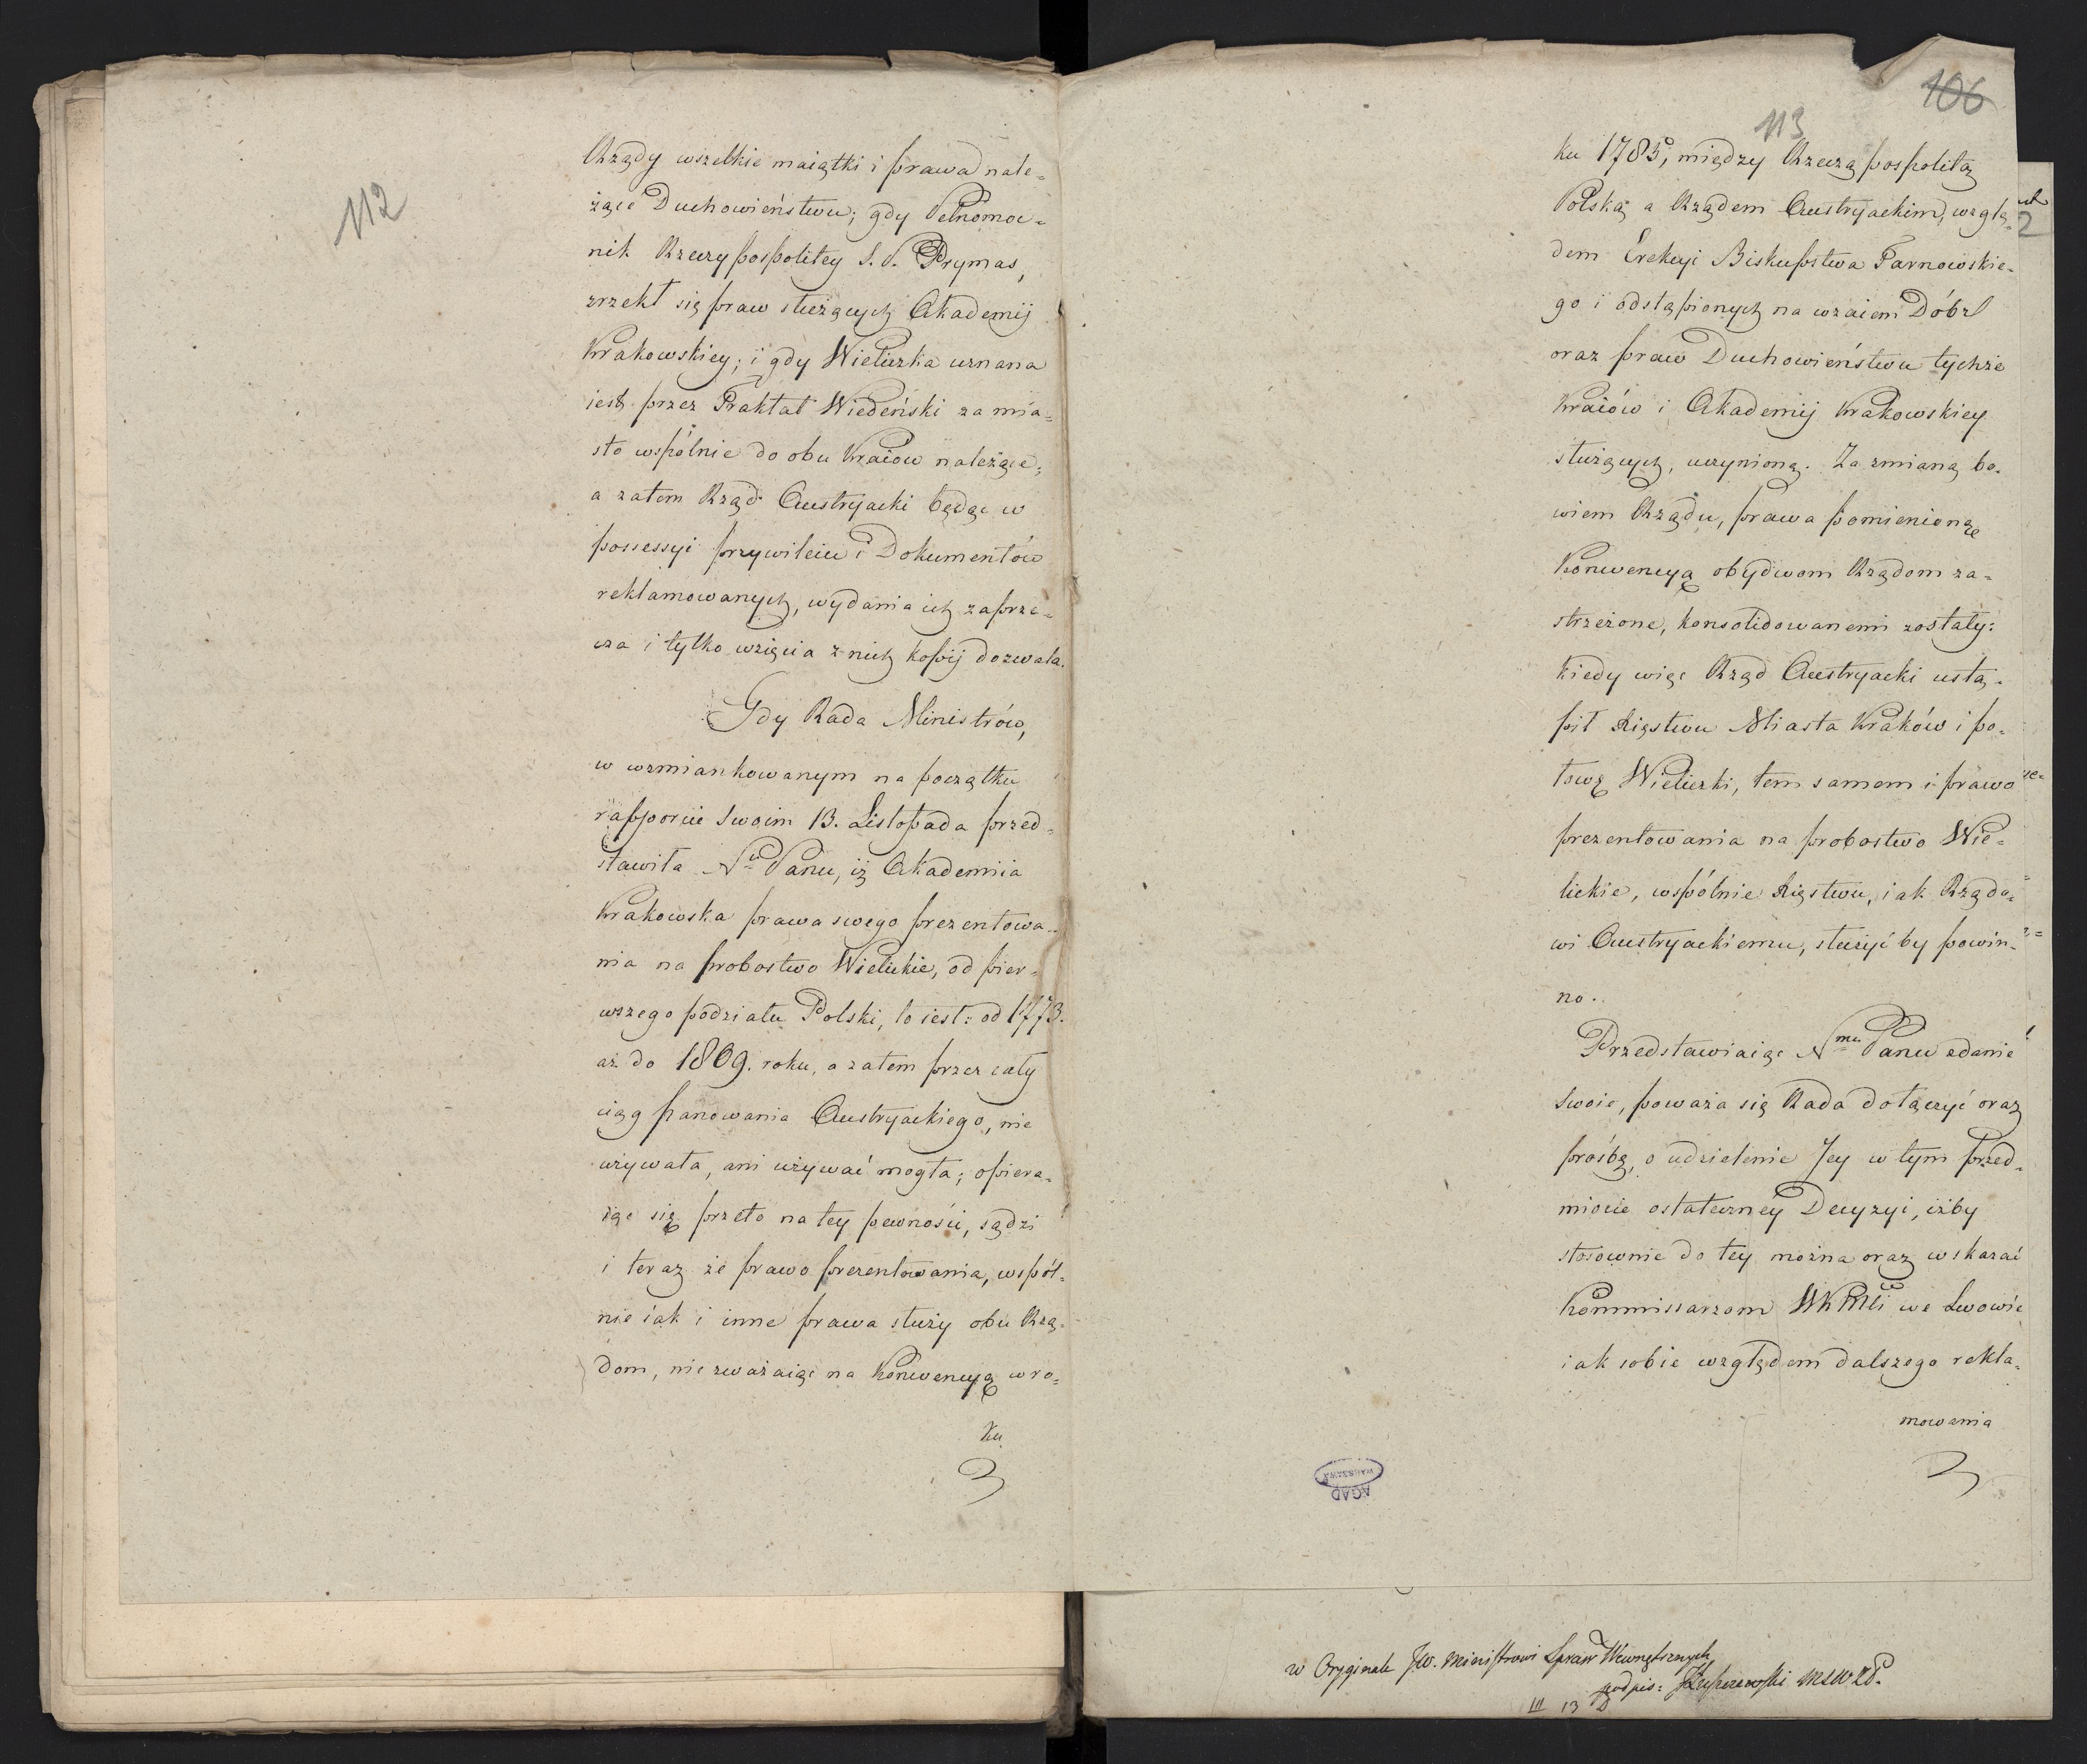 112
Rządy wszelkie maiątki i prawa nale=
żące Duchowieństwu; gdy Pełnomoc=
nik Rzeczypospolitey S. P. Prymas,
zrzekł się praw służących Akademij
Krakowskiey; i gdy Wieliczka uznana
iest przez Traktat Wiedeński za mia=
sto wspólnie do obu Kraiów należące;
a zatem Rząd Austryacki będąc w
possessyi przywileiu i Dokumentów
reklamowanych, wydania ich zaprze=
cza i tylko wzięcia z nich kopij dozwala.
Gdy Rada Ministrów,
w wzmiankowanym na początku
rapporcie Swoim 13. Listopada przed=
stawiła Nu Panu, iż Akademiia
Krakowska prawa swego prezentowa=
nia na probostwo Wielickie, od pier=
wszego podziału Polski, to iest: od 1773.
aż do 1809. roku, a zatem przez cały
ciąg panowania Austryackiego, nie
używała, ani używać mogła; opiera=
iąc się przeto na tey pewności, sądzi
i teraz że prawo prezentowania, wspól=
nie iak i inne prawa służy obu Rzą=
dom, nie zważaiąc na Konwencyą w ro=
ku
106
113
ku 1785o, między Rzecząpospolitą
Polską a Rządem Austryackim, wzglę=
dem Erekcyi Biskupstwa Tarnowskie=
go i odstąpionych na wzaiem Dóbr
oraz praw Duchowieństwu tychże
Kraiów i Akademij Krakowskiey
służących, uczynioną. Za zmianą bo=
wiem Rządu, prawa pomienioną
Konwencyą obydwom Rządom za=
strzeżone, konsolidowanemi zostały:
kiedy więc Rząd Austryacki ustą=
pił Xięstwu Miasta Kraków i po=
łowę Wieliczki, tem samem i prawo
prezentowania na probostwo Wie=
lickie, wspólnie Xięstwu, iak Rządo=
wi Austryackiemu, służyć by powin=
no.
Przedstawiaiąc Nmu Panu zdanie
Swoie, poważa się Rada dołączyć oraz
prośbę, o udzielenie Jey w tym przed=
miocie ostateczney Decyzyi, iżby
stosownie do tey można oraz wskazać
Kommissarzom WKMci we Lwowie
iak sobie względem dalszego rekla=
mowania
WARSZAWA
AGAD
w Oryginale JW. Ministrowi Spraw Wewnętrznych
podpis:
III 13